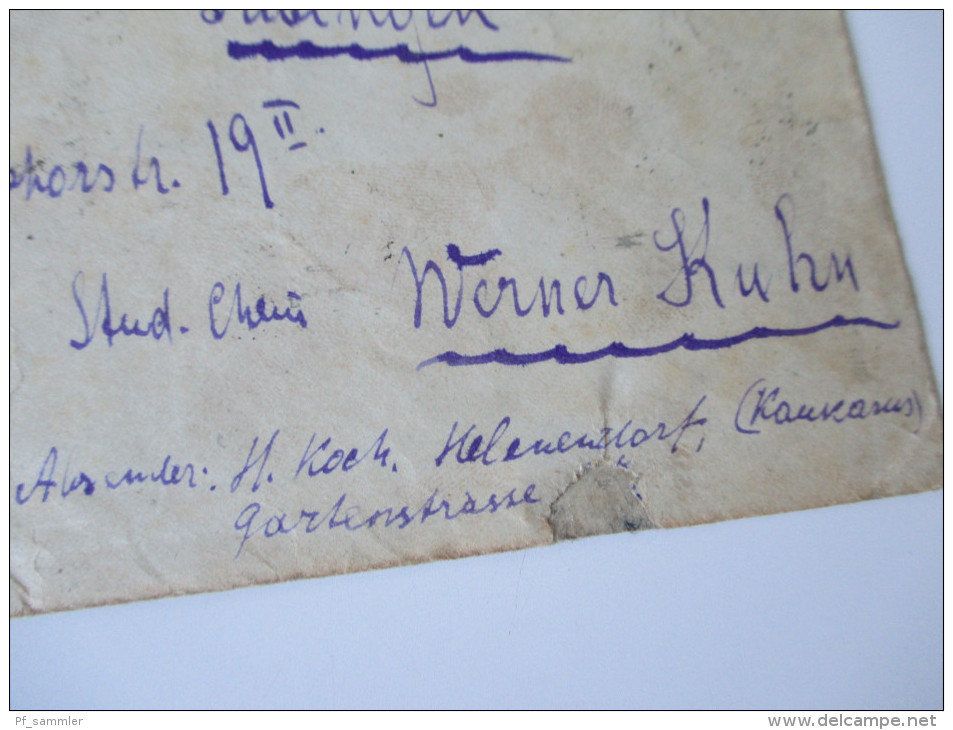 Tübingen
19 II.
Stud. Chem. Werner Kuhn
Absender: H. Koch. Helenendorf, (Kaukasus)
Gartenstrasse
Pf_sammler
www.delcampe.net